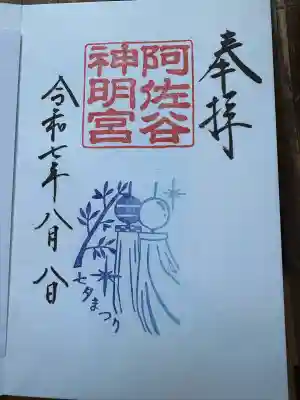 奉拝
阿佐谷
神明宮
七夕まつり
令和七年八月八日